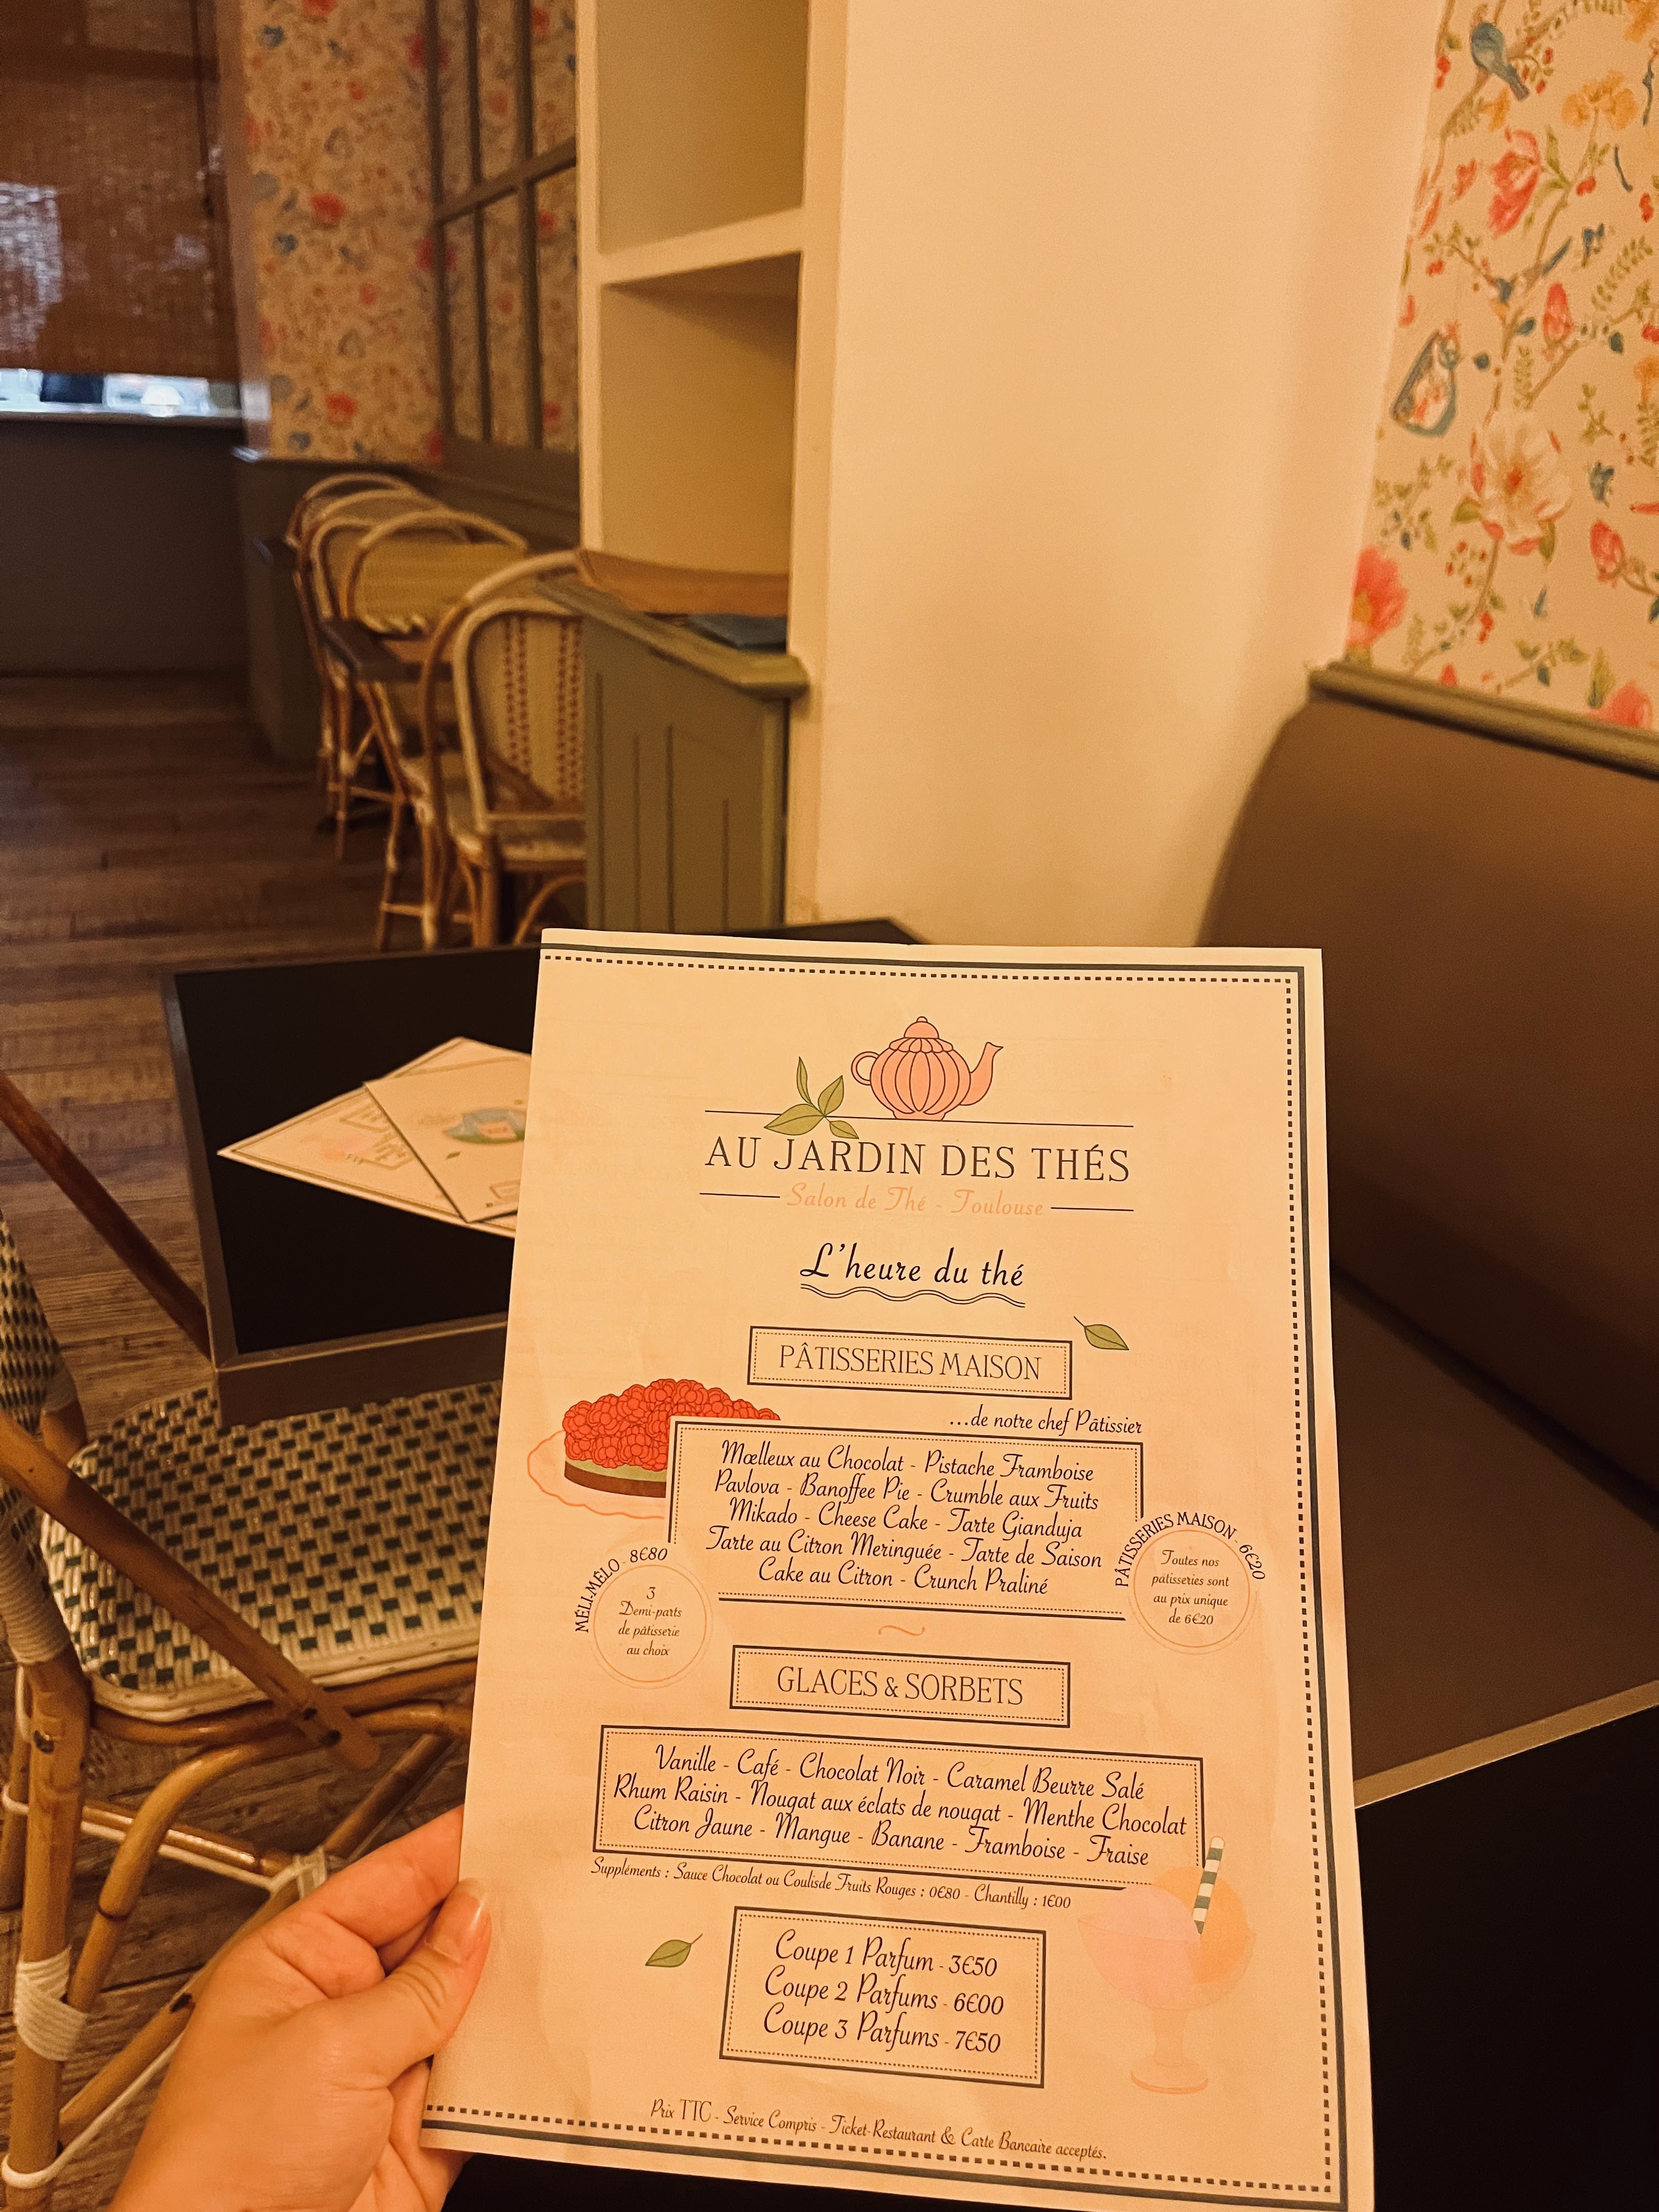 AU JARDIN DES THÉS
Salon de Thé - Toulouse
L'heure du thé
PÂTISSERIES MAISON
...de notre chef Pâtissier
Mœlleux au Chocolat - Pistache Framboise
Pavlova - Banoffee Pie - Crumble aux Fruits
Mikado - Cheese Cake - Tarte Gianduja
Tarte au Citron Meringuée - Tarte de Saison
Cake au Citron - Crunch Praliné
MÉLI-MÉLO - 8€80
3
Demi-parts
de pâtisserie
au choix
PÂTISSERIES MAISON - 6€20
Toutes nos
pâtisseries sont
au prix unique
de 6€20
GLACES & SORBETS
Vanille - Café - Chocolat Noir - Caramel Beurre Salé
Rhum Raisin - Nougat aux éclats de nougat - Menthe Chocolat
Citron Jaune - Mangue - Banane - Framboise - Fraise
Suppléments : Sauce Chocolat ou Coulisde Fruits Rouges : 0€80 - Chantilly : 1€00
Coupe 1 Parfum - 3€50
Coupe 2 Parfums - 6€00
Coupe 3 Parfums - 7€50
Prix TTC - Service Compris - Ticket-Restaurant & Carte Bancaire acceptés.